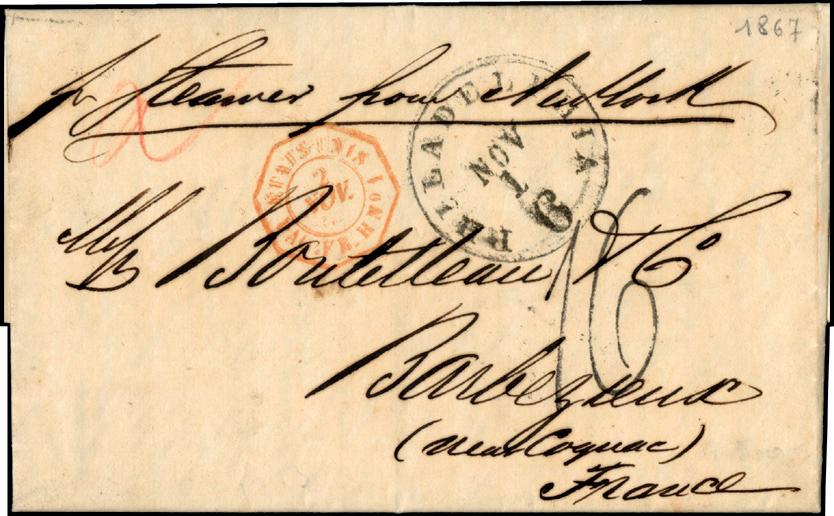 1867
pr Steamer from New York
PHILADELPHIA
NOV
1
6
ETATS-UNIS
2
NOV.
16
Boutelleau & Co
Barbezieux
(near Cognac)
France